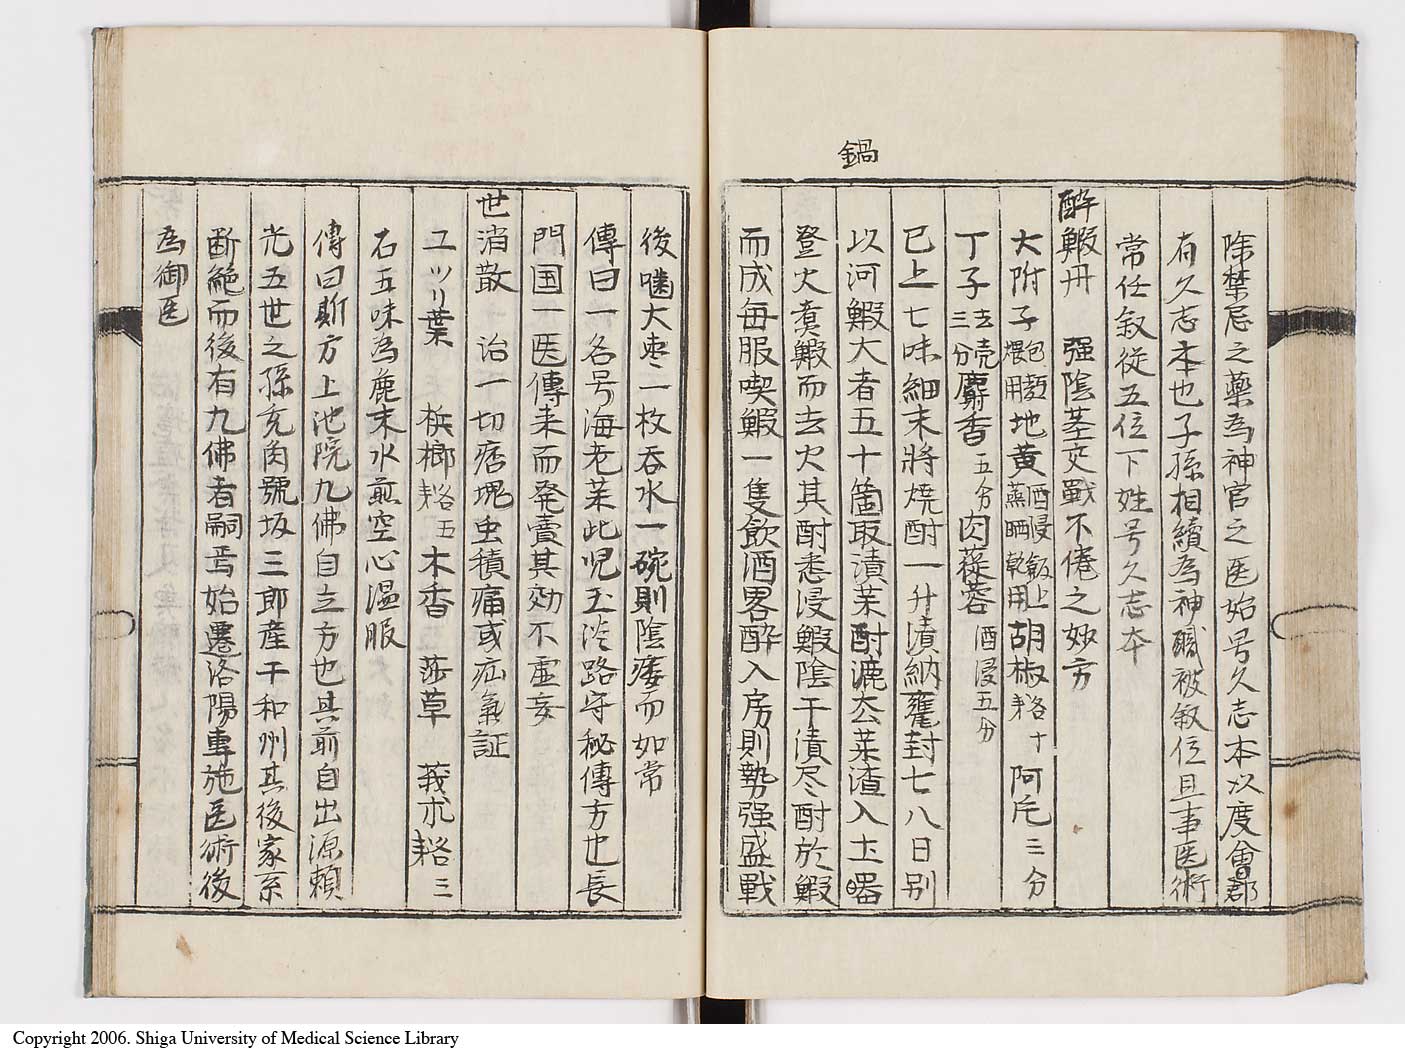 鍋
除禁忌之藥為神官之医始号久志本以度會郡
有久志本也子孫相續為神職被叙位且事医術
常任叙従五位下姓号久志本
酔鰕丹 強陰莖交戰不倦之妙方
大附子包麵煨用地黄酒浸飯上蒸晒乾用胡椒各十阿芫三分
丁子去売三分麝香五分肉蓯蓉酒浸五分
已上七味細末將焼酎一升漬納甕封七八日别
以河鰕大者五十箇取漬茱酎漉去茱渣入土器
登火煑鰕而去火其酎悉浸鰕陰干漬尽酎於鰕
而成毎服喫鰕一隻飲酒畧酔入房則勢强盛戰
後嚙大枣二枚呑水一碗則陰痿而如常
傳曰一名号海老茱此児玉淡路守秘傳方也長
門国一医傳来而発賣其効不虚妄
世消散 治一切痞塊虫積痛或疝氣証
ユツリ葉 梹榔各五 木香 莎草 莪朮各三
右五味為麁末水煎空心温服
傳曰斯方上池院九佛自立方也其前自出源頼
光五世之孫充角號坂三郎産于和州其後家系
断絶而後有九佛者嗣焉始遷洛陽專施医術後
為御医
Copyright 2006. Shiga University of Medical Science Library